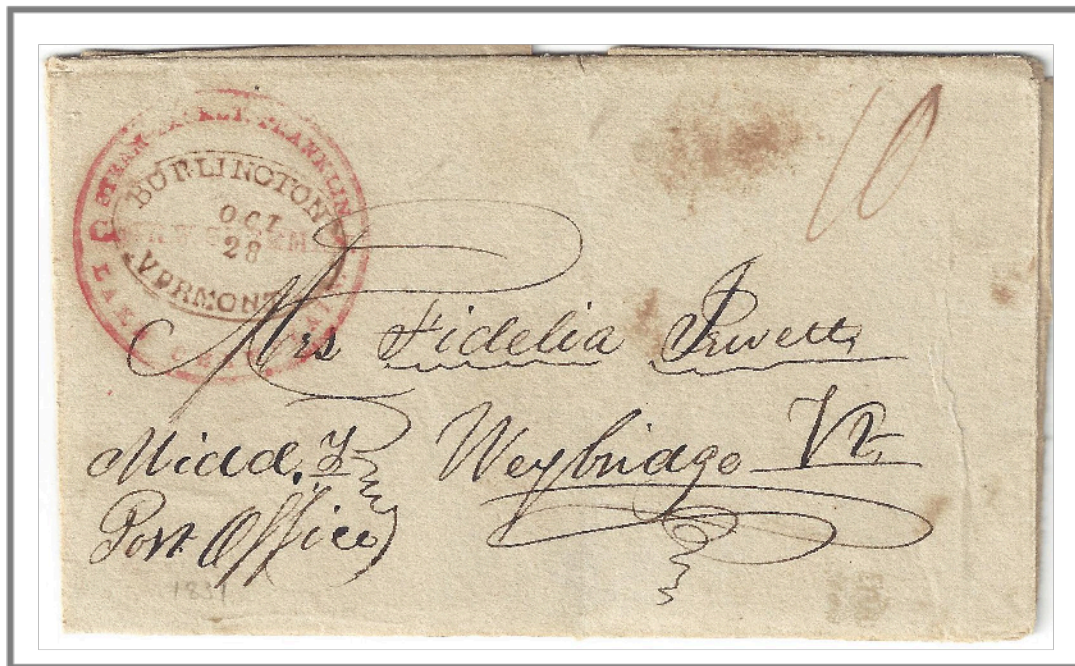 STEAM PACKET FRANKLIN
LAKE CHAMPLAIN
BURLINGTON
OCT
28
VERMONT
10
Mrs Fidelia Jewett
Midd.y Weybridge Vt.
Post Office
1831